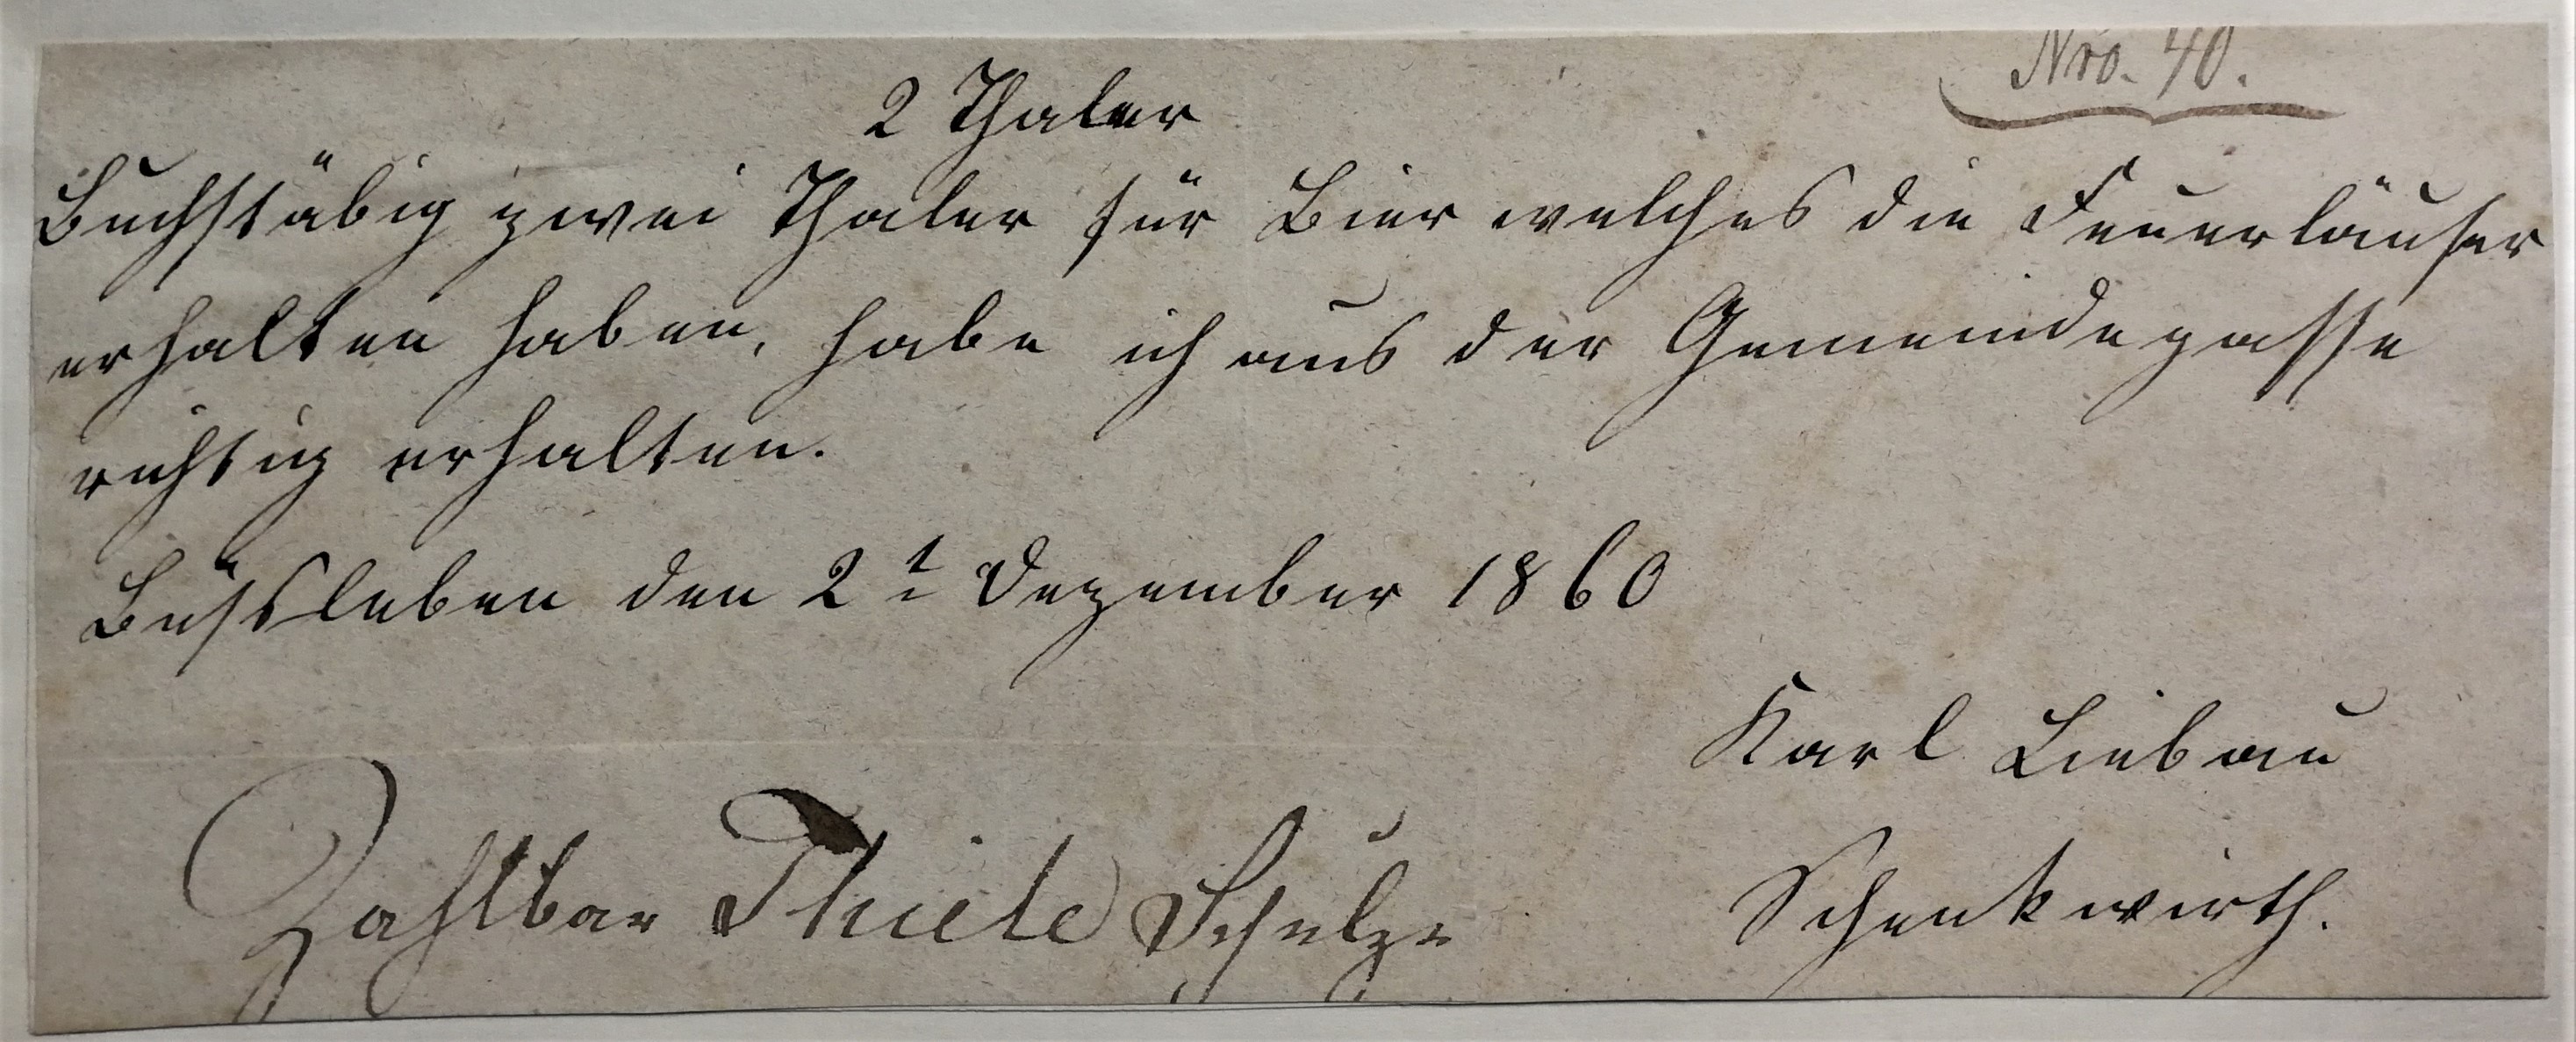 Nro. 40.
2 Thaler
Buchstäbig zwei Thaler für Bier welches die Feuerläufer
erhalten haben, habe ich aus der Gemeindegasse
richtig erhalten.
Büssleben den 2t Dezember 1860
Karl Liebau
Zahlbar Thiele Schulze
Schenkwirth.